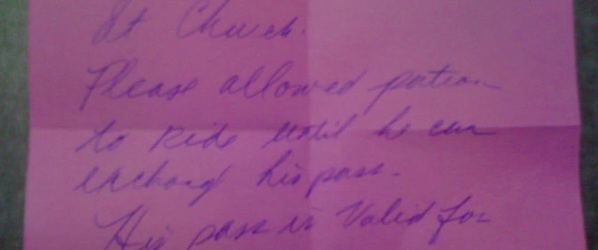 At Church.
Please allowed patron
to Ride until he can
exchang his pass.
His pass is Valid for